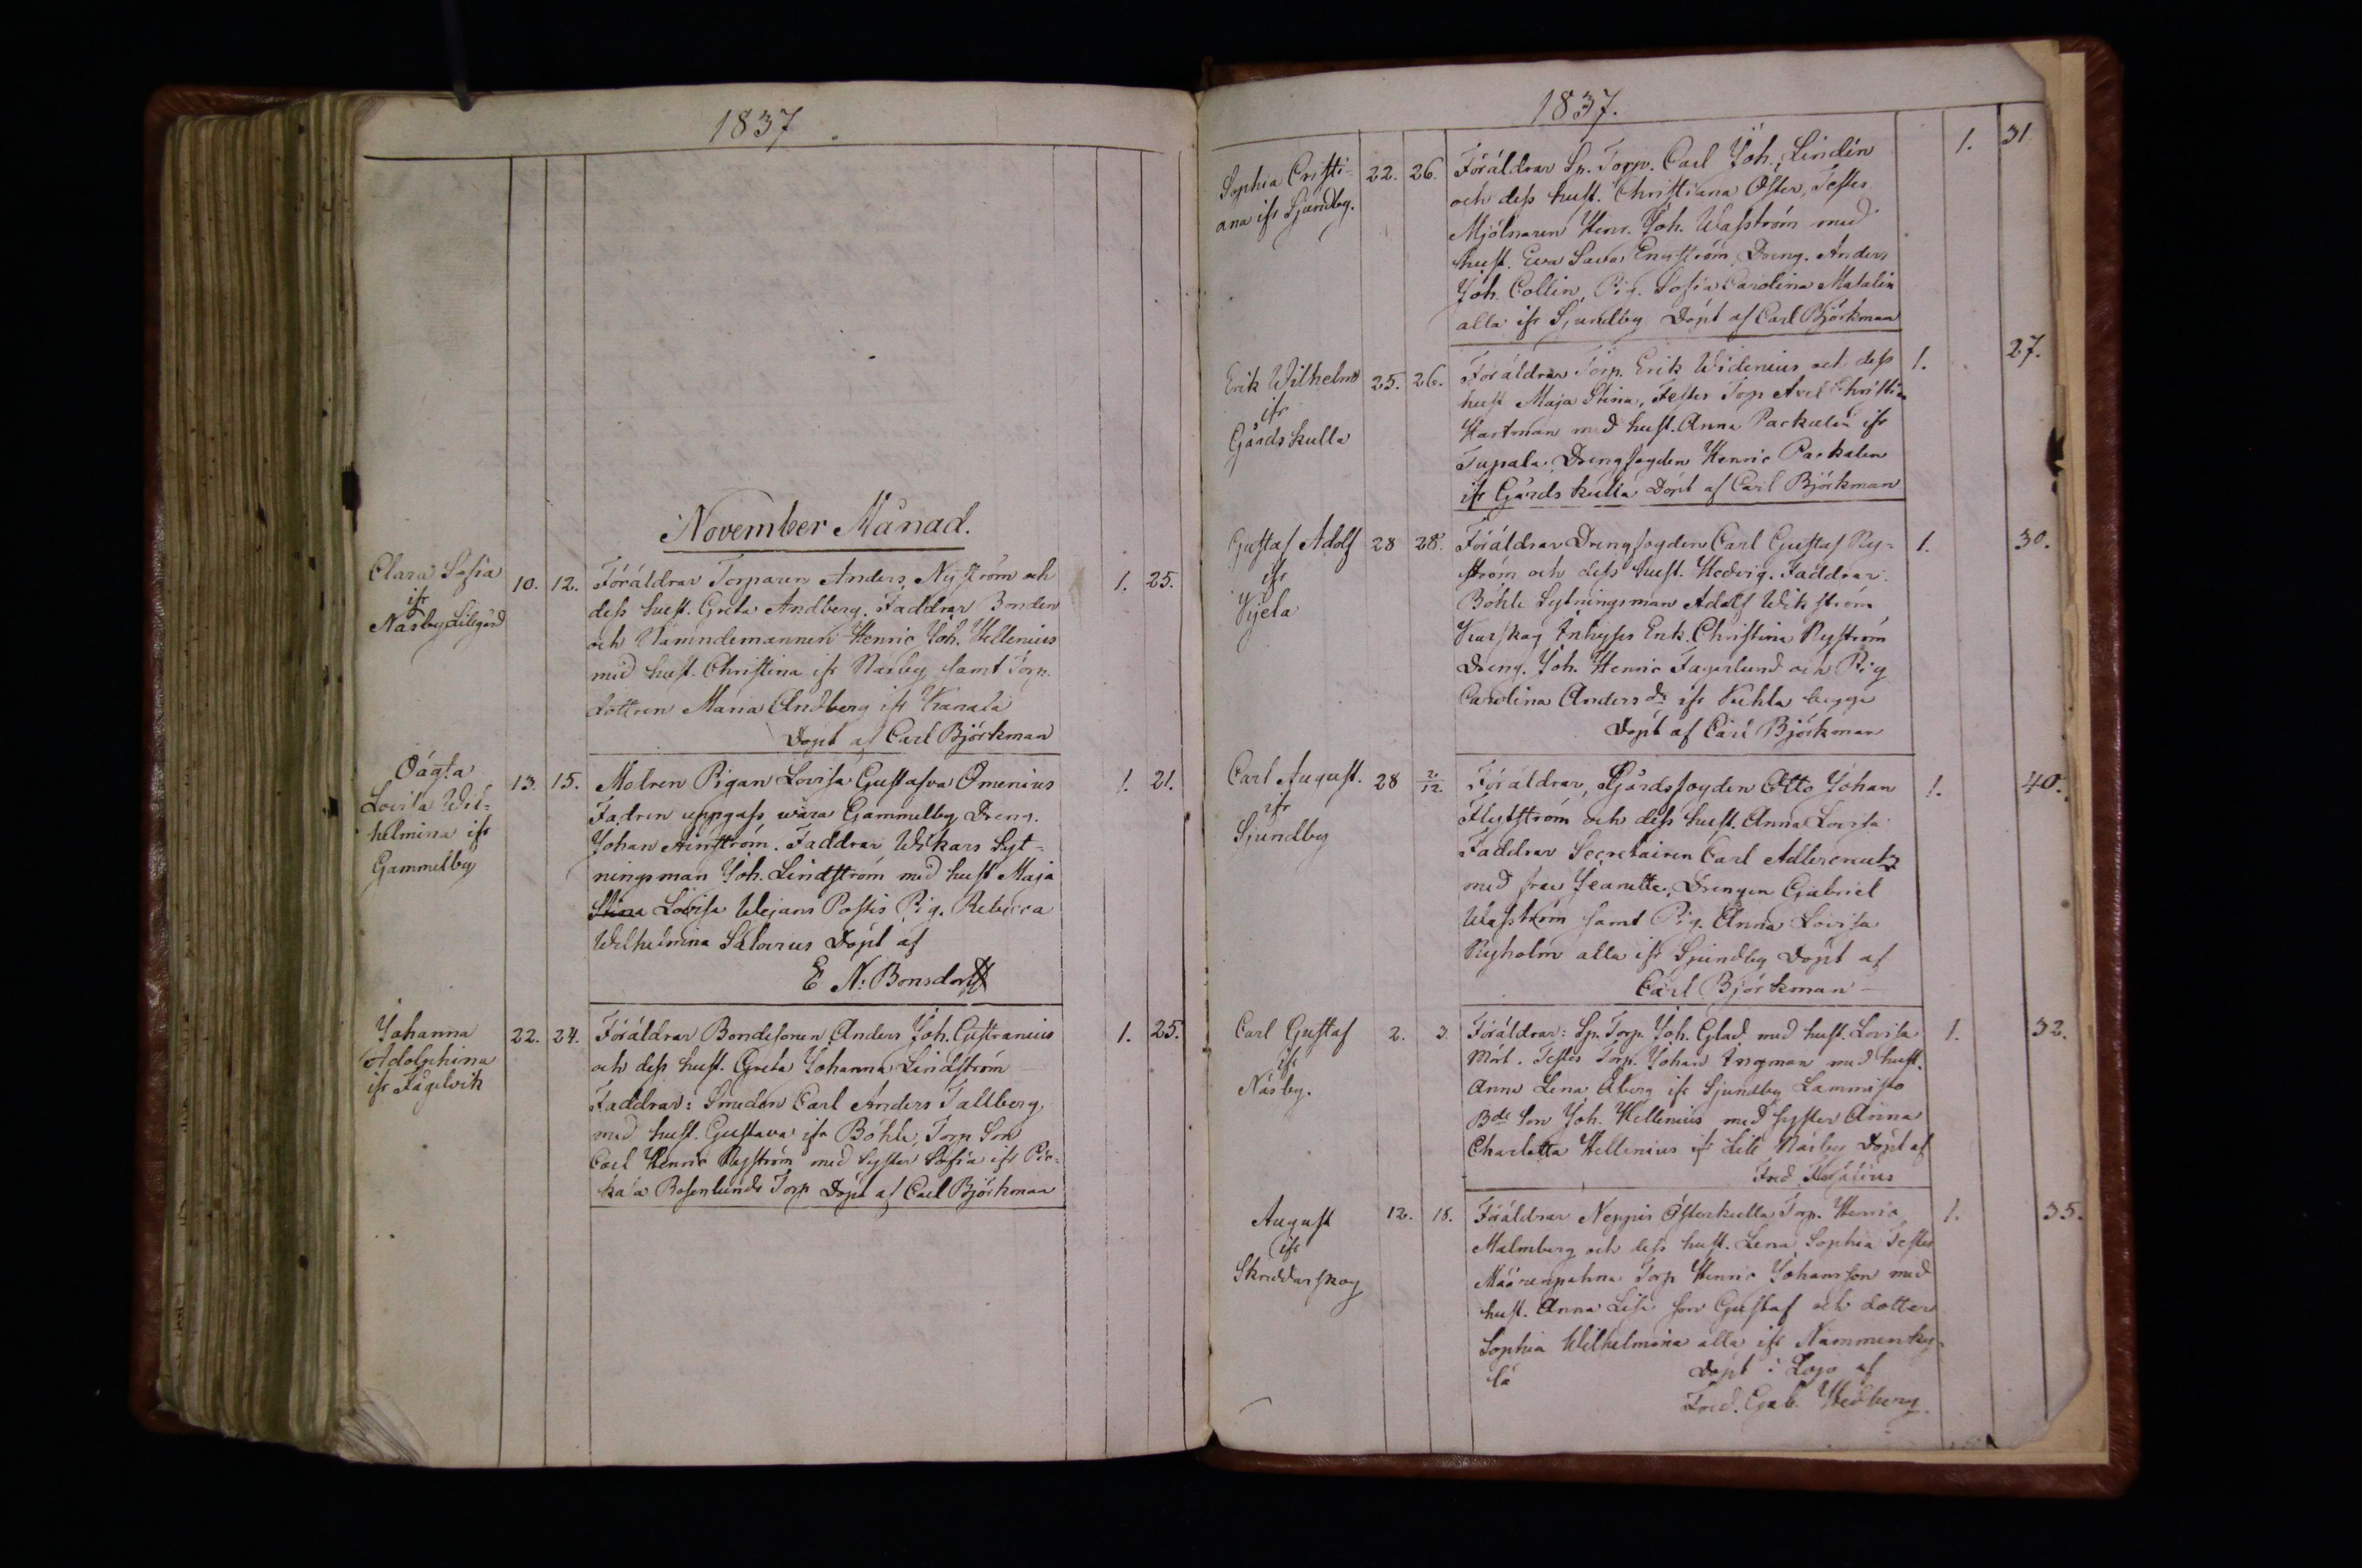 1837
November Månad.
Clara Sofia
ifr
Näsby Lillgård
10. 12. Föräldrar Torparen Anders Nyström och 1. 25.
dess hust. Greta Andberg. Faddrar Bonden
och Nämndemannen Henric Joh. Hellenius
med hust. Christina ifr Näsby samt Torp.
dottren Maria Andberg ifr Kanala
Döpt af Carl Björkman
Oägta
Lovisa Wil-
helmina ifr
Gammelby
13. 15. Modren Pigan Lovisa Gustafva Omenius 1. 21.
Fadren uppgafs wara Gammelby Dreng.
Johan Arnström. Faddrar Wikars Syt-
ningsman Joh. Lindström med hust Maja
Stina Lovisa Wejans Postis Pig. Rebecca
Wilhelmina Salovius Döpt af
E N: Bonsdorff
Johanna
Adolphina
ifr Fågelvik
22. 24. Föräldrar Bondesonen Anders Joh. Gustranius 1. 25.
och dess hust. Greta Johanna Lindström
Faddrar: Smeden Carl Anders Tallberg
med hust. Gustava ifr Böhle, Torp Son
Carl Henric Nyström med Syster Sofia ifr Pic-
kala Rosenlunds Torp Döpt af Carl Björkman
1837.
Sophia Cristi-
ana ifr Sjundby.
22. 26. Föräldrar Sp. Torp. Carl Joh. Lindén 1. 31
och dess hust. Christiana Öster, Testes
Mjölnaren Henr. Joh. Wasström med
hust. Eva Sara Engström, Dreng. Anders
Joh. Collin, Pig. Sofia Carolina Matalin
alla ifr Sjundby Döpt af Carl Björkman
Erik Wilhelm
ifr
Gårdskulla
25. 26. Föräldrar Torp. Erik Widenius och dess 1. 27.
hust Maja Stina, Testes Torp Axel Christian
Hartman med hust. Anna Packalen ifr
Tupala. Drengfogden Henric Packalen
ifr Gårdskulla Döpt af Carl Björkman
Gustaf Adolf
ifr
Kjela
28 28. Föräldrar Drengfogden Carl Gustaf Ny- 1. 30.
ström och dess hust. Hedvig. Faddrar.
Böhle Sytningsman Adolf Wikström
Karskog Inhyses Enk. Christina Nyström
Dreng. Joh. Henric Fagerlund och Pig
Carolina Andersdr ifr Kehla begge
Döpt af Carl Björkman
Carl August.
ifr
Sjundby
28 2/12. Föräldrar, Gårdsfogden Otto Johan 1. 40.
Flytström och dess hust. Anna Lovisa
Faddrar Secretairen Carl Adlercreutz
med fru Jeanette, Drengen Gabriel
Wasström samt Pig. Anna Lovisa
Nyholm alla ifr Sjundby Döpt af
Carl Björkman
Carl Gustaf
ifr
Näsby.
2. 3 Föräldrar: Sp. Torp. Joh. Glad med hust. Lovisa 1. 32.
Mört. Testes Torp. Johan Ingman med hust.
Anna Lena Åberg ifr Sjundby Lammisto
Bde Son Joh. Hellenius med syster Anna
Charlotta Hellenius ifr Lill Näsby Döpt af
Fred.
August
ifr
Skreddarskog
12. 18. Föräldrar Neppis Österkulla Torp. Henric 1. 35.
Malmberg och dess hust. Lena Sophia Testes
Määrenpahna Torp Henric Johansson med
hust. Anna Lisa son Gustaf och dotter
Sophia Wilhelmina alla ifr Nämmenky-
lä Döpt i Lojo af
Fred. Gab. Hedberg.